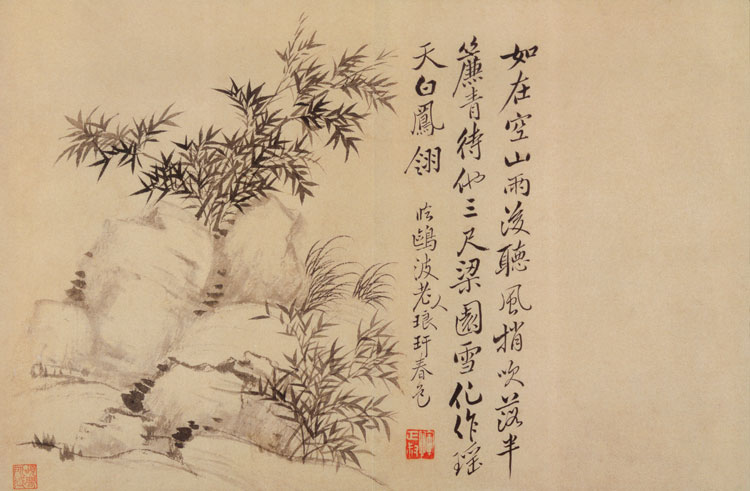 如在空山雨後聽風梢吹落半
簾青待他三尺梁園雪化作瑤
天白鳳翎
臨鷗波老人琅玕春色
惲正叔